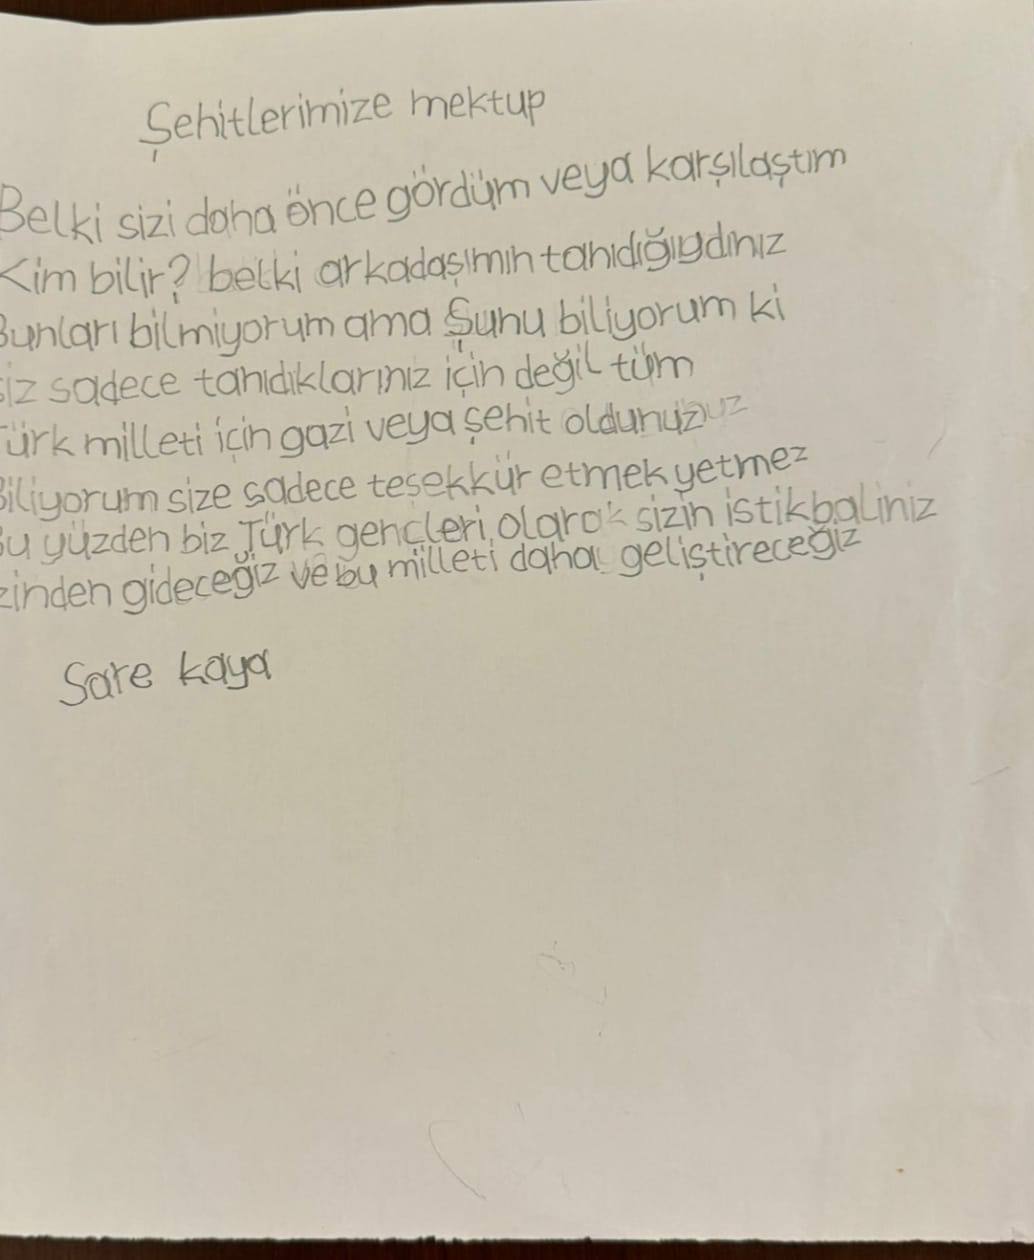 Şehitlerimize mektup
Belki sizi daha önce gördüm veya karşılaştım
Kim bilir? belki arkadaşımın tanıdığıydınız
Bunları bilmiyorum ama Şunu biliyorum ki
siz sadece tanıdıklarınız için değil tüm
Türk milleti için gazi veya şehit oldunuz
Biliyorum size sadece teşekkür etmek yetmez
Bu yüzden biz Türk gençleri olarak sizin istikbaliniz
izinden gideceğiz ve bu milleti daha geliştireceğiz
Sare kaya